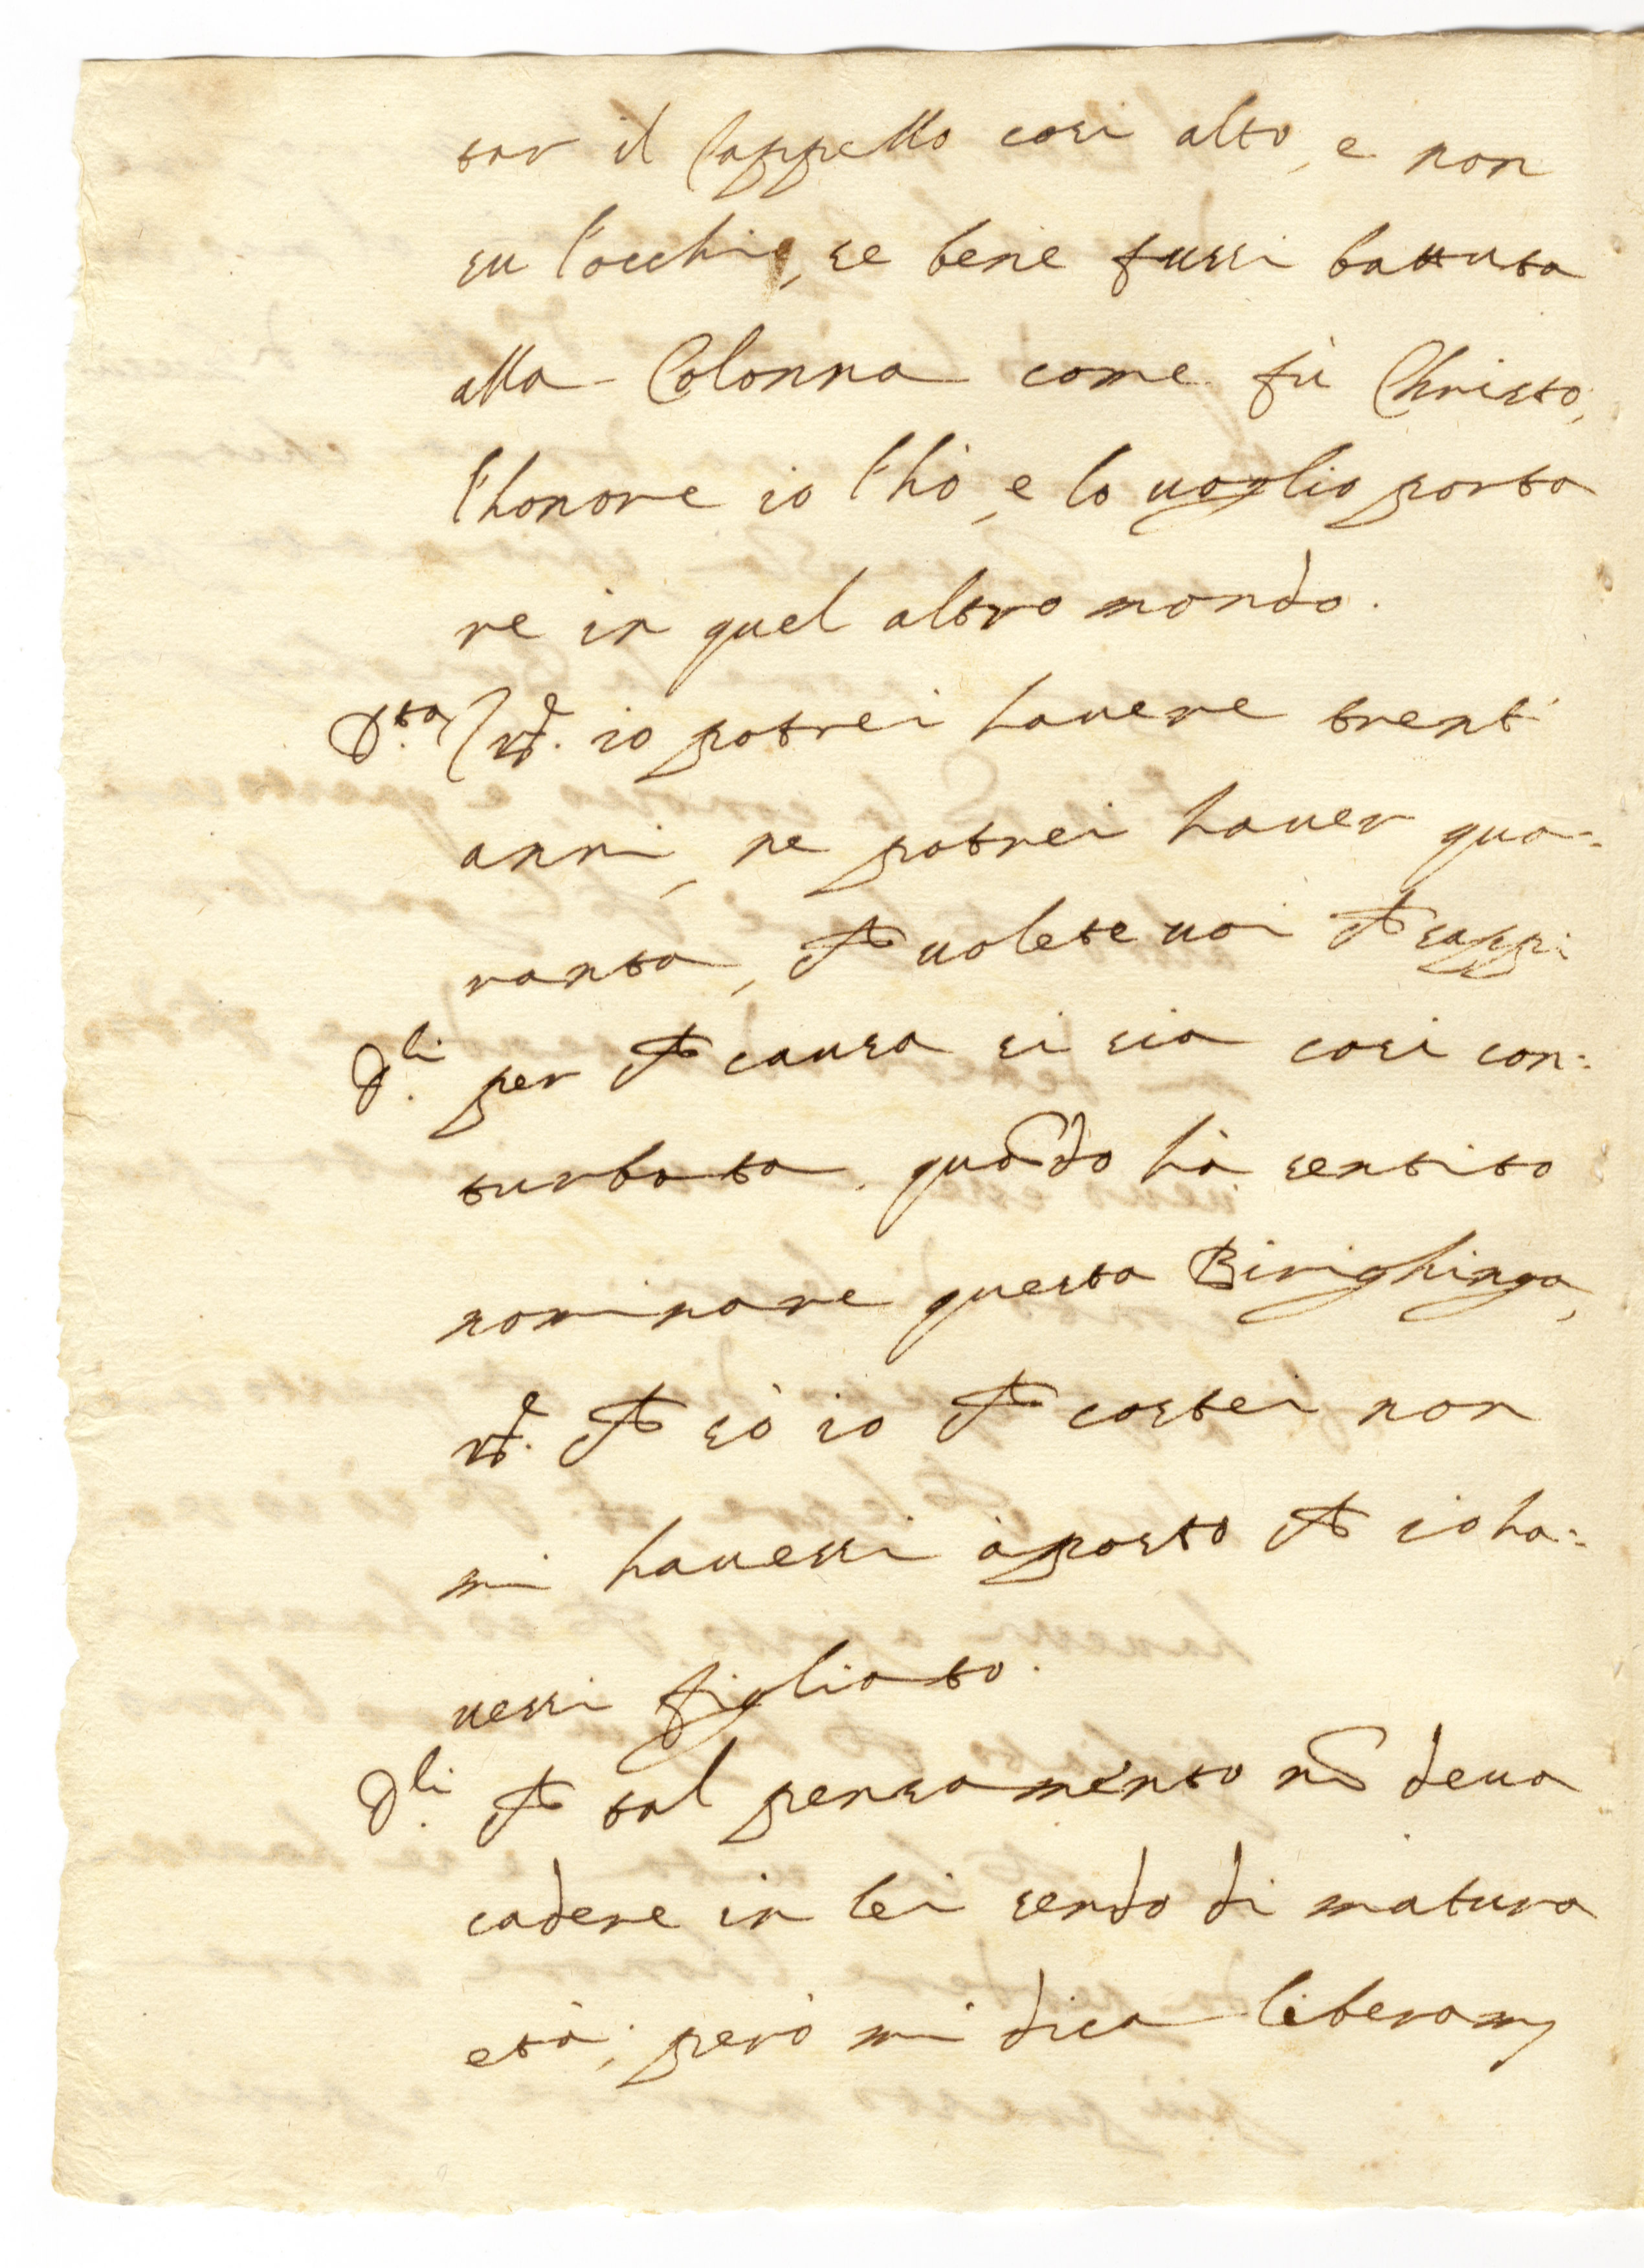 tar il Cappello cosi alto, e non
su l'occhio, se bene fussi battuta
alla Colonna come fù Christo,
l'honore io l'hò, e lo uoglio porta
re in quel altro mondo.
io potrei hauere trent'
anni, ne potrei hauer qua:
ranta, che uolete uoi che sappi
D.li per che causa si sia cosi con:
turbata quãdo hà sentito
nominare questa Birighinga,
che sò io che costei non
mi hauessi aposto che io ha:
uessi figliato.
D.li che tal pensamento nõ deua
cadere in lei sendo di matura
età, però mi dica liberam